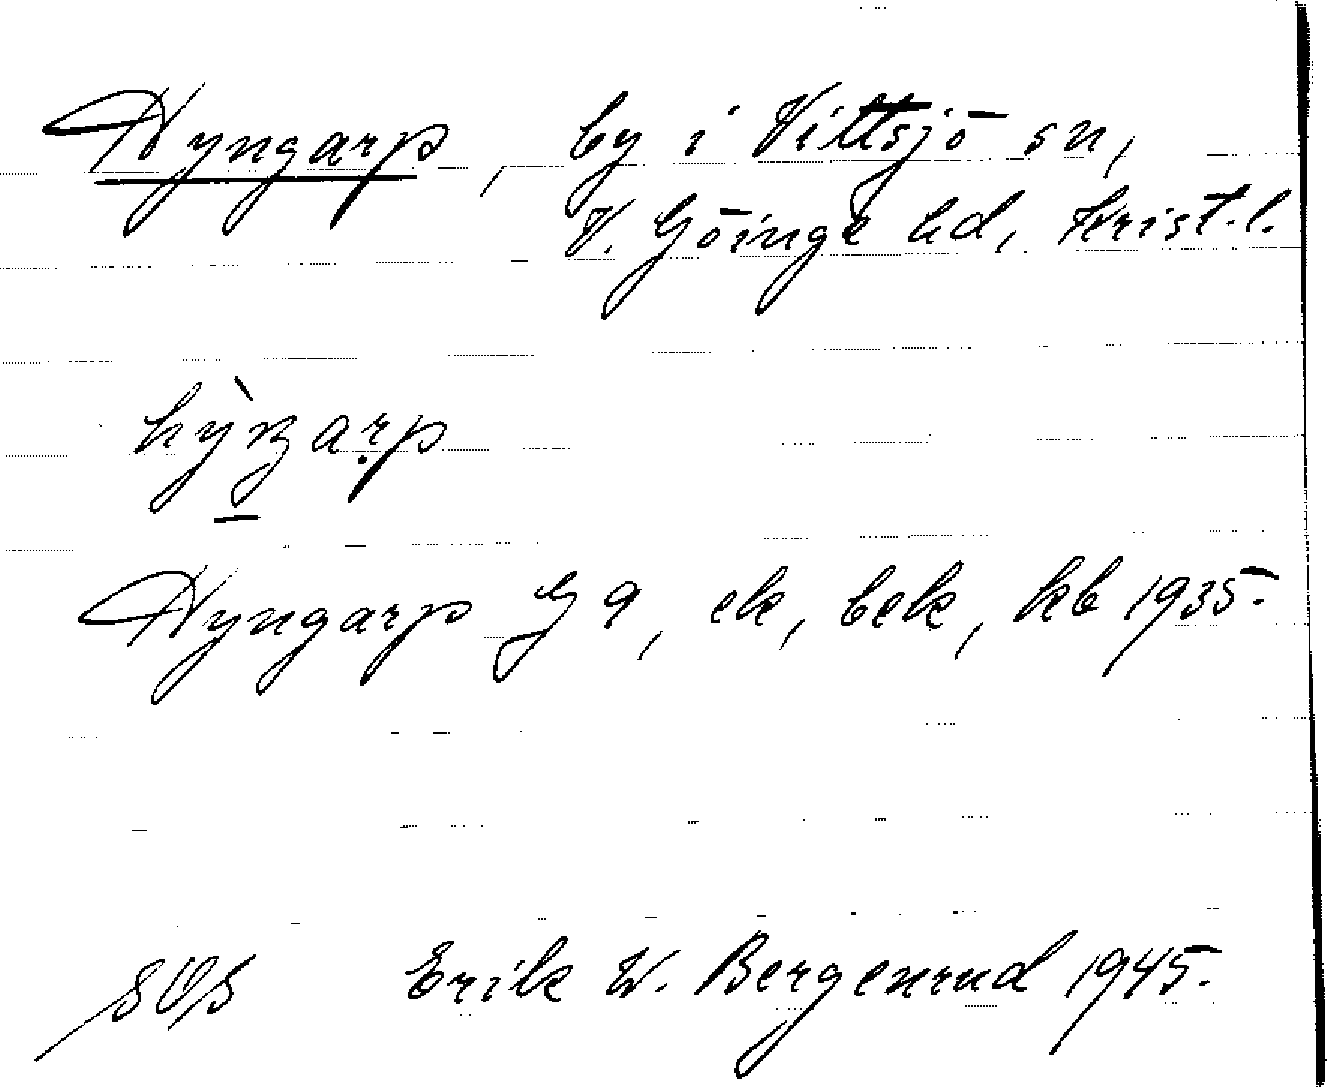 Hyngarp, by i Vittsjö sn,
V. Göinge hd, Krist. l.
hỳŋarp
Hyngarp G 9, ek, bek, kb 1935.
SOS Erik W. Bergenrud 1945.